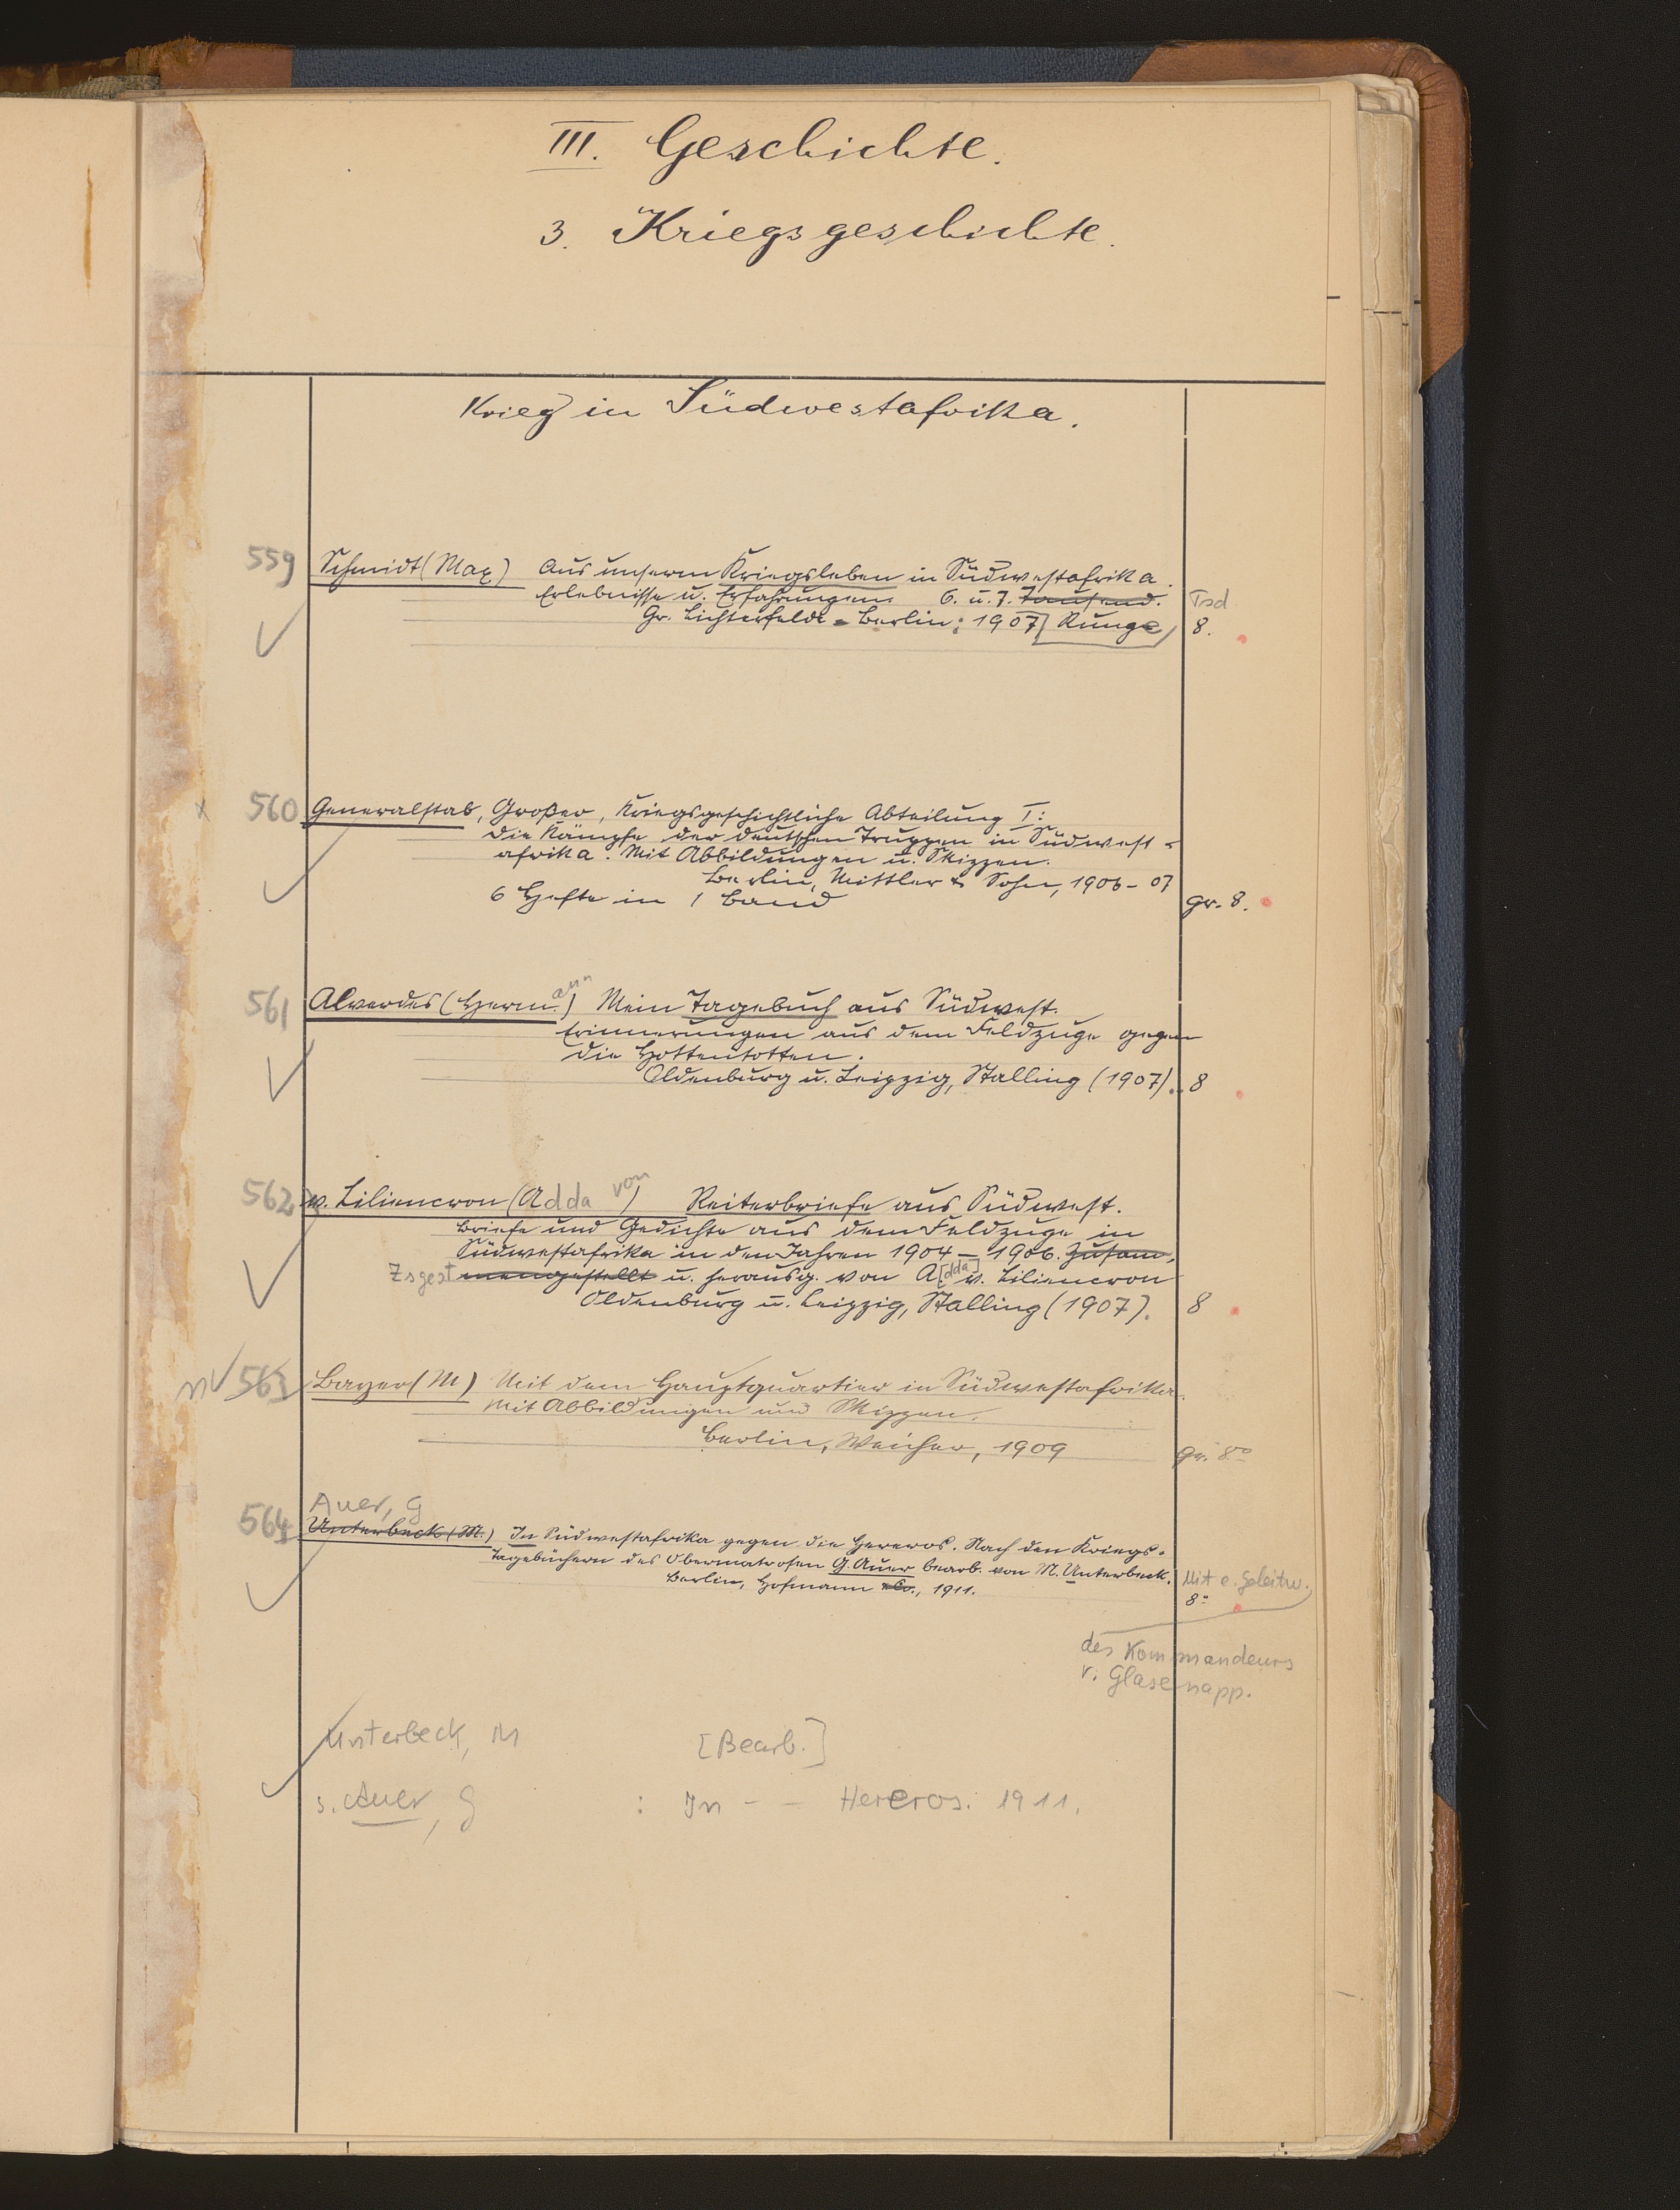 III. Geschichte.
3. Kriegsgeschichte.
Krieg in Südwestafrika.
559 Schmidt (Max) Aus unserem Kriegsleben in Südwestafrika.
Erlebnisse u. Erfahrungen. 6. u. 7. Tausend. Tsd
Gr. Lichterfelde-Berlin: 1907 [Runge] 8.
x 560 Generalstab, Großer, Kriegsgeschichtliche Abteilung I:
Die Kämpfe der deutschen Truppen in Südwest-
afrika. Mit Abbildungen u. Skizzen.
Berlin, Mittler & Sohn, 1906-07
6 Hefte in 1 Band gr. 8.
561 Alverdes (Hermann) Mein Tagebuch aus Südwest.
Erinnerungen aus dem Feldzuge gegen
die Hottentotten.
Oldenburg u. Leipzig, Stalling (1907). 8
562 v. Liliencron (Adda von) Reiterbriefe aus Südwest.
Briefe und Gedichte aus dem Feldzuge in
Südwestafrika in den Jahren 1904-1906. Zusam-
Zsgest mengestellt u. herausg. von A[dda] v. Liliencron
Oldenburg u. Leipzig, Stalling (1907). 8
563 Bayer (M) Mit dem Hauptquartier in Südwestafrika.
Mit Abbildungen und Skizzen.
Berlin, Weicher, 1909 gr. 8°
Auer, G
564 Unterbeck (M.) In Südwestafrika gegen die Hereros. Nach den Kriegs-
Tagebüchern des Obermatrosen G. Auer bearb. von M. Unterbeck. Mit e. Geleitw.
Berlin, Hofmann & Co., 1911. 8°
des Kommandeurs
v. Glasenapp.
Unterbeck, M [Bearb.]
s. Auer, G : In - - Hereros. 1911.